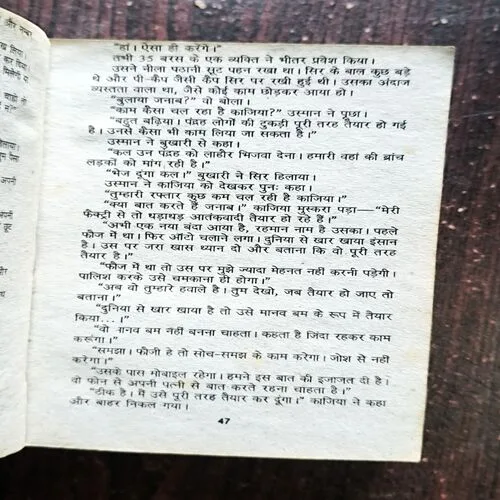 "हां। ऐसा ही करेंगे।"
तभी 35 बरस के एक व्यक्ति ने भीतर प्रवेश किया।
उसने नीला पठानी सूट पहन रखा था। सिर के बाल कुछ बड़े
थे और पी-कैप जैसी कैप सिर पर रखी हुई थी। उसका अंदाज
व्यस्तता वाला था, जैसे कोई काम छोड़कर आया हो।
"बुलाया जनाब?" वो बोला।
"काम कैसा चल रहा है काजिया?" उस्मान ने पूछा।
"बहुत बढ़िया। पंद्रह लोगों की टुकड़ी पूरी तरह तैयार हो गई
है। उनसे कैसा भी काम लिया जा सकता है।"
उस्मान ने बुखारी से कहा।
"कल उन पंद्रह को लाहौर भिजवा देना। हमारी वहां की ब्रांच
लड़कों को मांग रही है।"
"भेज दूंगा कल।" बुखारी ने सिर हिलाया।
उस्मान ने काजिया को देखकर पुनः कहा।
"तुम्हारी रफ्तार कुछ कम चल रही है काजिया।"
"क्या बात करते हैं जनाब।" काजिया मुस्करा पड़ा—"मेरी
फैक्ट्री से तो धड़ाधड़ आतंकवादी तैयार हो रहे हैं।"
"अभी एक नया बंदा आया है, रहमान नाम है उसका। पहले
फौज में था। फिर ऑटो चलाने लगा। दुनिया से खार खाया इंसान
है। उस पर जरा खास ध्यान दो और बताना कि वो पूरी तरह
तैयार है।"
"फौज में था तो उस पर मुझे ज्यादा मेहनत नहीं करनी पड़ेगी।
पालिश करके उसे चमकाना ही होगा।"
"अब वो तुम्हारे हवाले है। तुम देखो, जब तैयार हो जाए तो
बताना।"
"दुनिया से खार खाया है तो उसे मानव बम के रूप में तैयार
किया...।"
"वो मानव बम नहीं बनना चाहता। कहता है जिंदा रहकर काम
करूंगा।"
"समझा। फौजी है तो सोच-समझ के काम करेगा। जोश से नहीं
करेगा।"
"उसके पास मोबाइल रहेगा। हमने इस बात की इजाजत दी है।
वो फोन से अपनी पत्नी से बात करते रहना चाहता है।"
"ठीक है। मैं उसे पूरी तरह तैयार कर दूंगा।" काजिया ने कहा
और बाहर निकल गया।
47